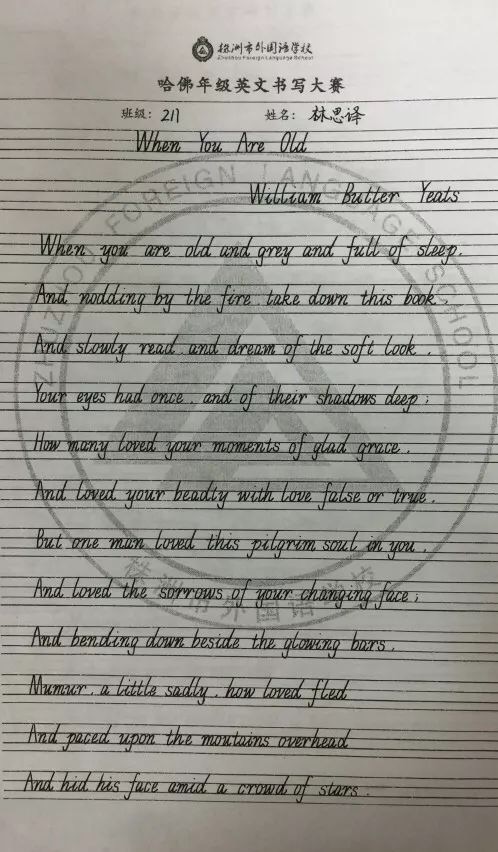 株洲市外国语学校
Zhuzhou Foreign Language School
哈佛年级英文书写大赛
班级：211 姓名：林思译
When You Are Old
William Butter Yeats
When you are old and grey and full of sleep,
And nodding by the fire, take down this book,
And slowly read, and dream of the soft look,
Your eyes had once, and of their shadows deep;
How many loved your moments of glad grace,
And loved your beadty with love false or true,
But one man loved this pilgrim soul in you,
And loved the sorrows of your changing face;
And bending down beside the glowing bars,
Mumur, a little sadly, how loved fled
And paced upon the moutains overhead
And hid his face amid a crowd of stars.
ZHUZHOU FOREIGN LANGUAGE SCHOOL
株洲市外国语学校